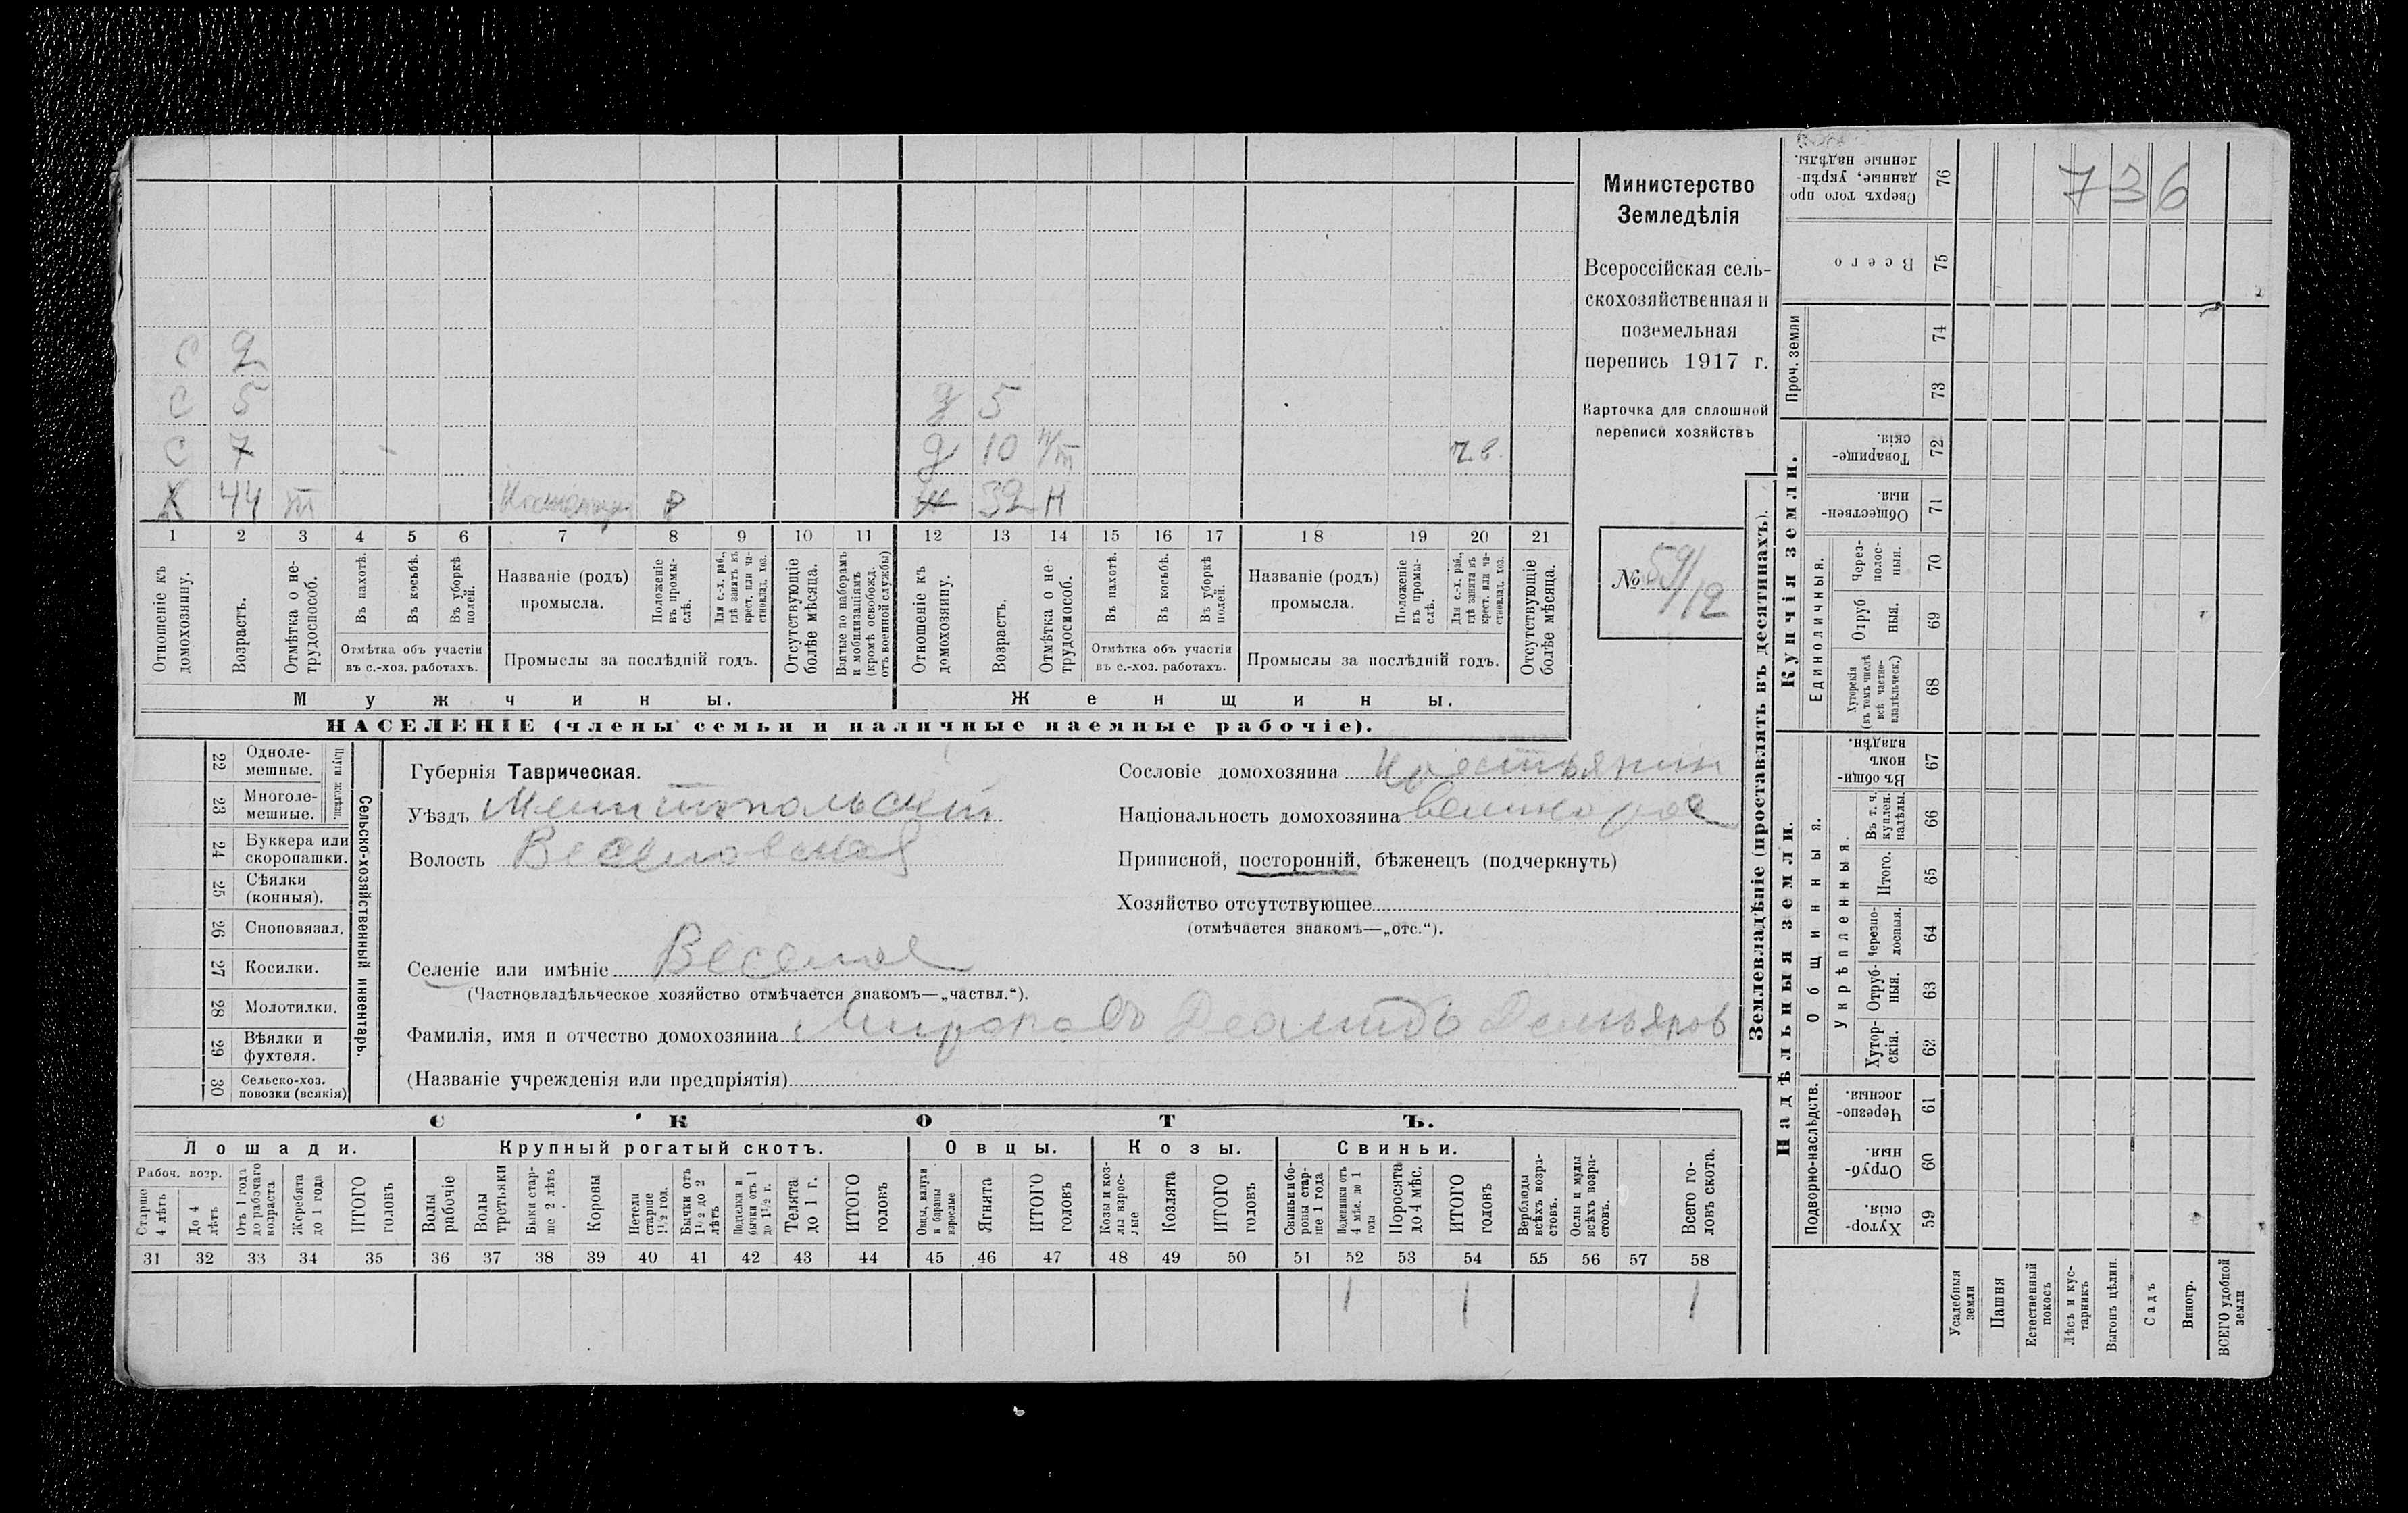 Министерство
Земледѣлія
Всероссійская сель-
скохозяйственная и
поземельная
перепись 1917 г.
Карточка для сплошной
переписи хозяйствъ
№ 59/12
736
С 2
С 5
д 5
С 7
д 10 н/т
К 44 т
Р
ж 32 н
1 2 3 4 5 6 7 8 9 10 11 12 13 14 15 16 17 18 19 20 21
Отношеніе къ домохозяину.
Возрастъ.
Отмѣтка о не-трудоспособ.
Въ пахотѣ.
Въ косьбѣ.
Въ уборкѣ полей.
Отмѣтка объ участіи
въ с.-хоз. работахъ.
Названіе (родъ)
промысла.
Положеніе въ промы-слѣ.
Для с.-х. раб., гдѣ занятъ въ крест. или ча-стновлад. хоз.
Промыслы за послѣдній годъ.
Отсутствующіе болѣе мѣсяца.
Взятые по наборамъ и мобилизаціямъ (кромѣ освобожд. отъ военной службы)
Отношеніе къ домохозяину.
Возрастъ.
Отмѣтка о не-трудоспособ.
Въ пахотѣ.
Въ косьбѣ.
Въ уборкѣ полей.
Отмѣтка объ участіи
въ с.-хоз. работахъ.
Названіе (родъ)
промысла.
Положеніе въ промы-слѣ.
Для с.-х. раб., гдѣ занята въ крест. или ча-стновлад. хоз.
Промыслы за послѣдній годъ.
Отсутствующіе болѣе мѣсяца.
Мужчины.
Женщины.
НАСЕЛЕНІЕ (члены семьи и наличные наемные рабочіе).
22 Одноле-мешные.
23 Многоле-мешные.
Плуги желѣзн.
24 Буккера или скоропашки.
25 Сѣялки (конныя).
26 Сноповязал.
27 Косилки.
28 Молотилки.
29 Вѣялки и фухтеля.
30 Сельско-хоз. повозки (всякія)
Сельско-хозяйственный инвентарь.
Губернія Таврическая.
Уѣздъ Мелитопольскій
Волость Веселовская
Селеніе или имѣніе Веселое
(Частновладѣльческое хозяйство отмѣчается знакомъ—„частвл.“).
Фамилія, имя и отчество домохозяина Мироновъ
(Названіе учрежденія или предпріятія)
Сословіе домохозяина крестьянин
Національность домохозяина великорос
Приписной, посторонній, бѣженецъ (подчеркнуть)
Хозяйство отсутствующее
(отмѣчается знакомъ—„отс.“).
СКОТЪ.
Лошади.
Крупный рогатый скотъ.
Овцы.
Козы.
Свиньи.
Рабоч. возр.
Старше 4 лѣтъ
До 4 лѣтъ
Отъ 1 года до рабочаго возраста
Жеребята до 1 года
ИТОГО головъ
Волы рабочіе
Волы третьяки
Быки стар-ше 2 лѣтъ
Коровы
Нетели старше 1½ год.
Бычки отъ 1½ до 2 лѣтъ
Подтелки и бычки отъ 1 до 1½ г.
Телята до 1 г.
ИТОГО головъ
Овцы, валухи и бараны взрослые
Ягнята
ИТОГО головъ
Козы и коз-лы взрос-лые
Козлята
ИТОГО головъ
Свиньи и бо-ровы стар-ше 1 года
Подсвинки отъ 4 мѣс. до 1 года
Поросята до 4 мѣс.
ИТОГО головъ
Верблюды всѣхъ возра-стовъ.
Ослы и мулы всѣхъ возра-стовъ.
Всего го-ловъ скота.
31 32 33 34 35 36 37 38 39 40 41 42 43 44 45 46 47 48 49 50 51 52 53 54 55 56 57 58
1 1 1
Землевладѣніе (проставлять въ десятинахъ).
Купчія земли.
Надѣльныя земли.
Сверхъ того про-данные, укрѣп-ленные надѣлы. 76
Всего 75
Проч. земли 74 73
Товарище-скія. 72
Обществен-ныя. 71
Единоличныя.
Черезполос-ныя. 70
Отруб-ныя. 69
Хуторскія (въ томъ числѣ всѣ частно-владѣльческ.) 68
Общинныя.
Въ общин-номъ владѣн. 67
Укрѣпленныя.
Въ т. ч. куплен. надѣлы. 66
Итого. 65
Черезпо-лосныя. 64
Отруб-ныя. 63
Хутор-скія. 62
Подворно-наслѣдств.
Черезпо-лосныя. 61
Отруб-ныя. 60
Хутор-скія. 59
Усадебныя земли
Пашня
Естественный покосъ
Лѣсъ и кус-тарникъ
Выгонъ цѣлин.
Садъ
Виногр.
ВСЕГО удобной земли